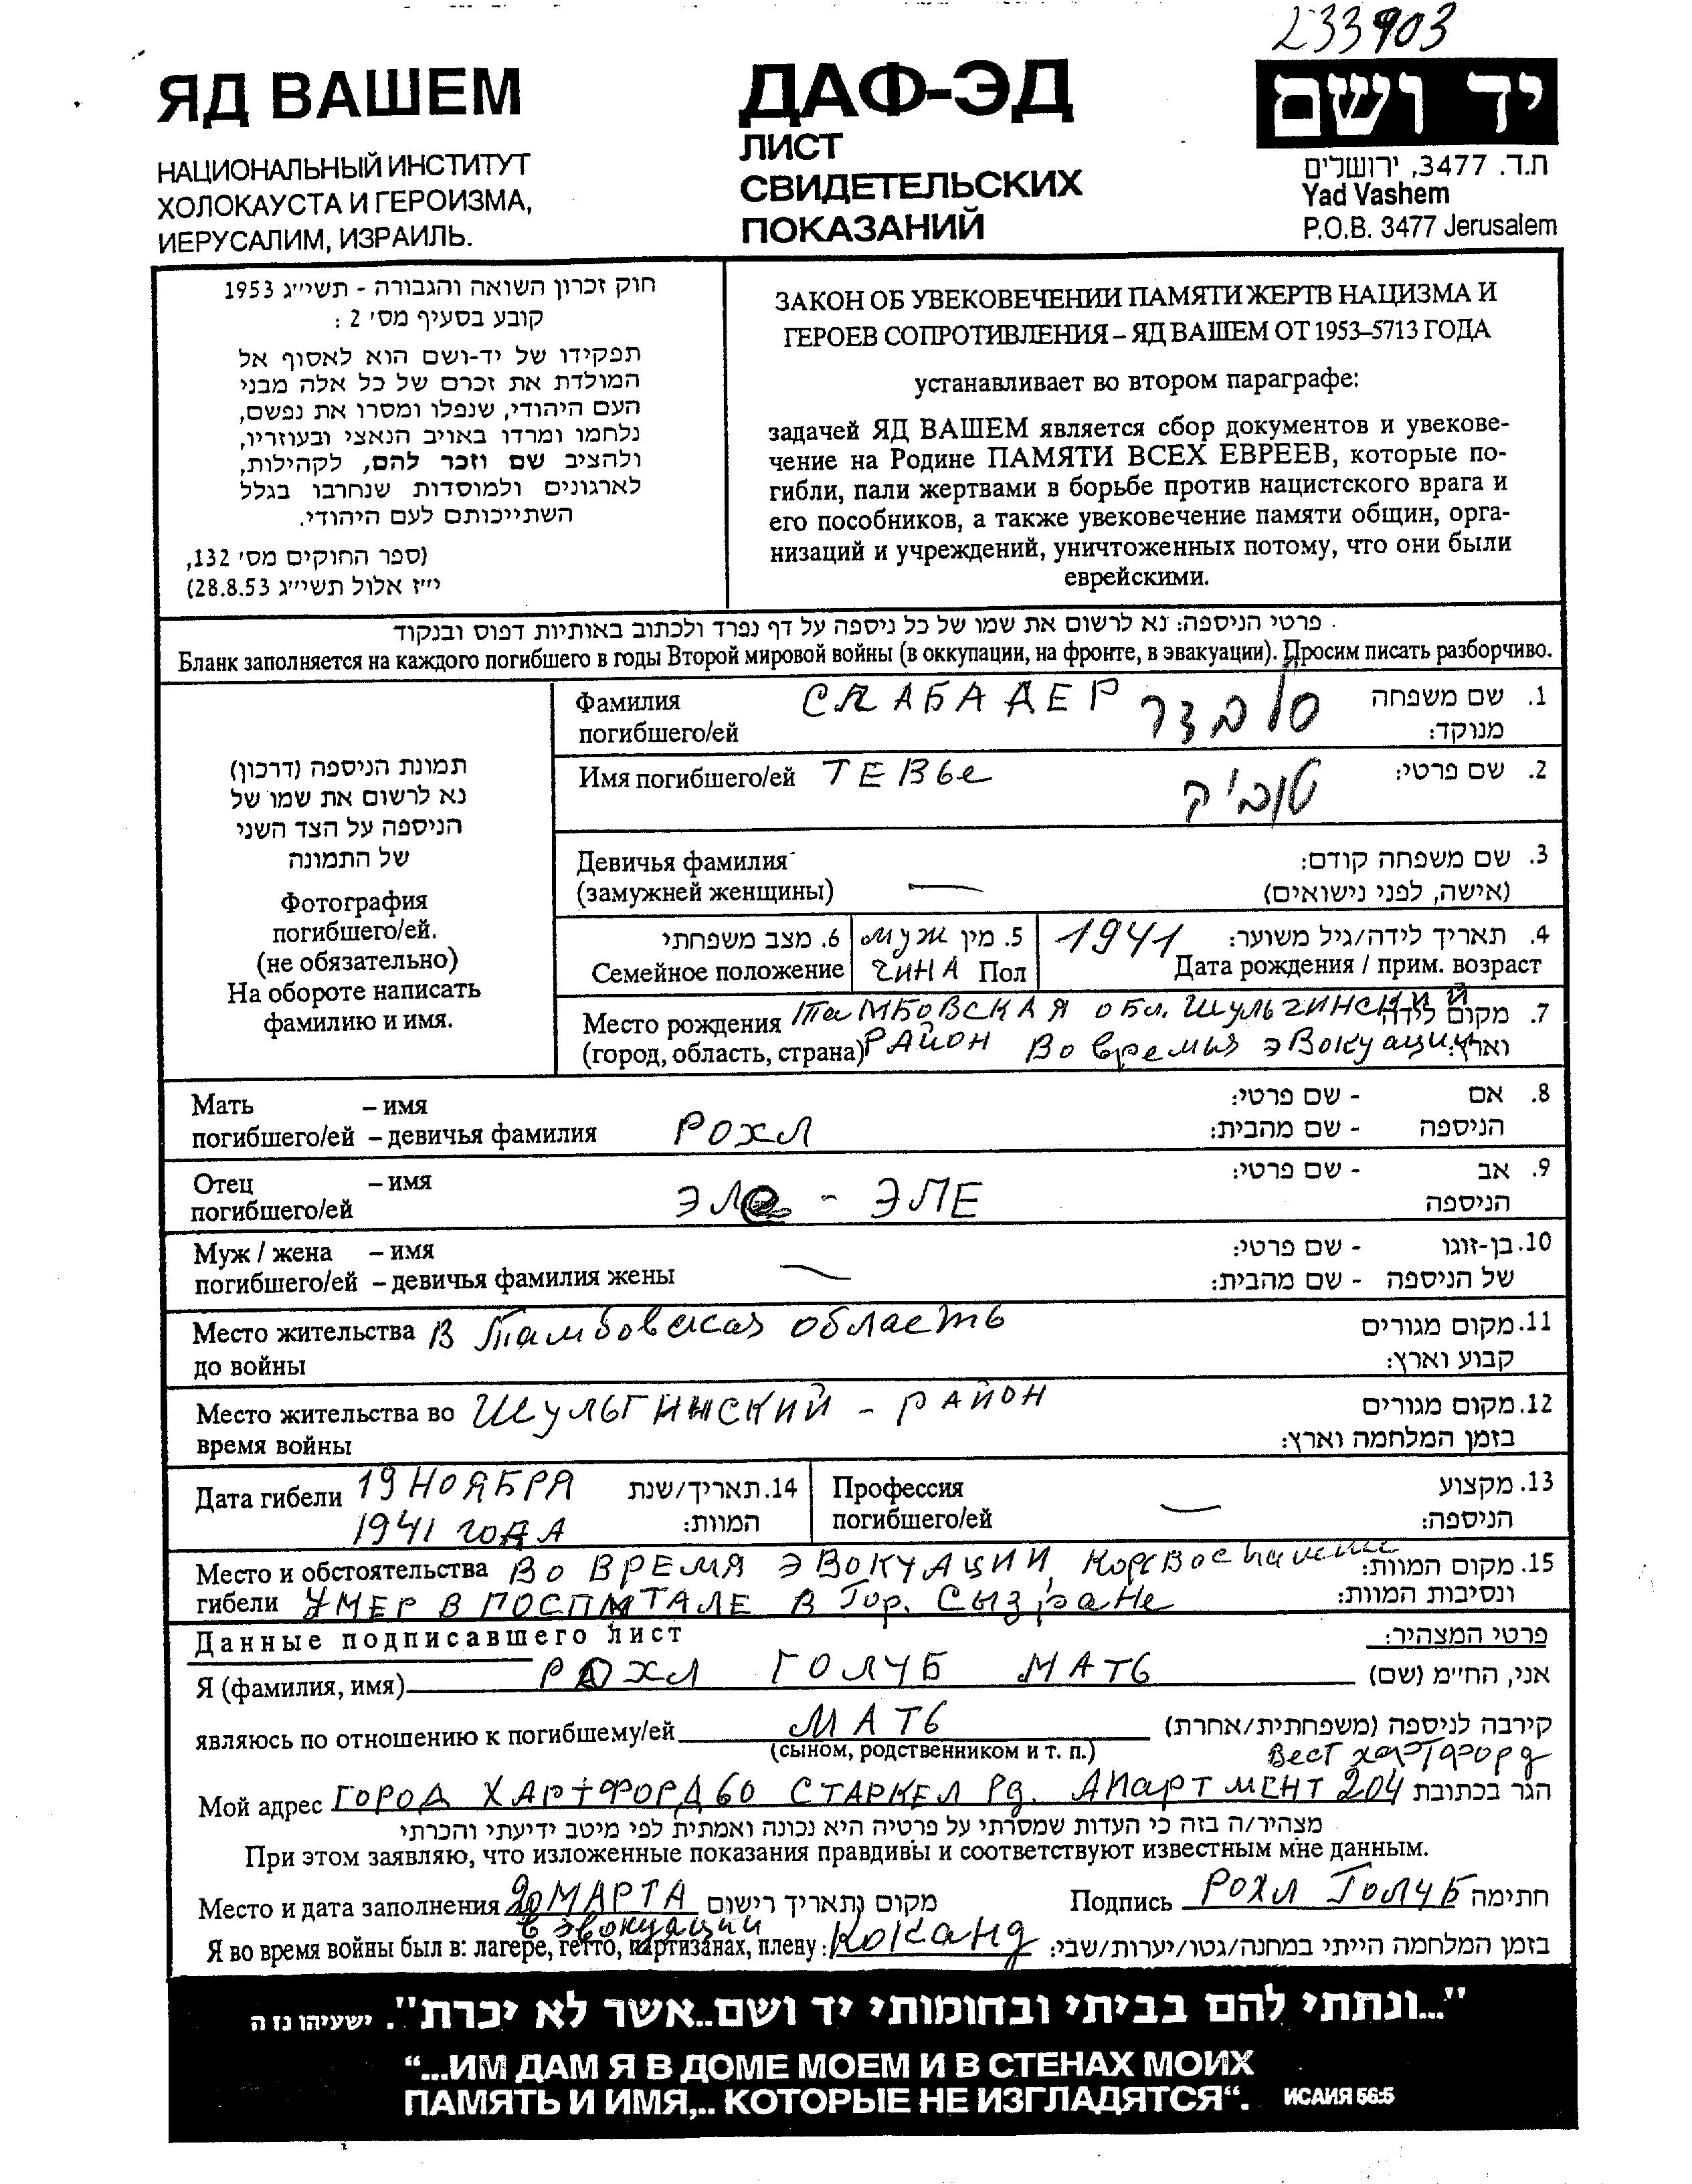 233903
ЯД ВАШЕМ
НАЦИОНАЛЬНЫЙ ИНСТИТУТ
ХОЛОКАУСТА И ГЕРОИЗМА,
ИЕРУСАЛИМ, ИЗРАИЛЬ.
ДАФ-ЭД
ЛИСТ
СВИДЕТЕЛЬСКИХ
ПОКАЗАНИЙ
יד ושם
ת.ד. 3477, ירושלים
Yad Vashem
P.O.B. 3477 Jerusalem
חוק זכרון השואה והגבורה - תשי״ג 1953
קובע בסעיף מס׳ 2 :
תפקידו של יד-ושם הוא לאסוף אל
המולדת את זכרם של כל אלה מבני
העם היהודי, שנפלו ומסרו את נפשם,
נלחמו ומרדו באויב הנאצי ובעוזריו,
ולהציב שם וזכר להם, לקהילות,
לארגונים ולמוסדות שנחרבו בגלל
השתייכותם לעם היהודי.
(ספר החוקים מס׳ 132,
י״ז אלול תשי״ג 28.8.53)
ЗАКОН ОБ УВЕКОВЕЧЕНИИ ПАМЯТИ ЖЕРТВ НАЦИЗМА И
ГЕРОЕВ СОПРОТИВЛЕНИЯ – ЯД ВАШЕМ ОТ 1953–5713 ГОДА
устанавливает во втором параграфе:
задачей ЯД ВАШЕМ является сбор документов и увекове-
чение на Родине ПАМЯТИ ВСЕХ ЕВРЕЕВ, которые по-
гибли, пали жертвами в борьбе против нацистского врага и
его пособников, а также увековечение памяти общин, орга-
низаций и учреждений, уничтоженных потому, что они были
еврейскими.
פרטי הניספה: נא לרשום את שמו של כל ניספה על דף נפרד ולכתוב באותיות דפוס ובנקוד
Бланк заполняется на каждого погибшего в годы Второй мировой войны (в оккупации, на фронте, в эвакуации). Просим писать разборчиво.
תמונת הניספה (דרכון)
נא לרשום את שמו של
הניספה על הצד השני
של התמונה
Фотография
погибшего/ей.
(не обязательно)
На обороте написать
фамилию и имя.
Фамилия СЛАБАДЕР סלבדר 1. שם משפחה
погибшего/ей מנוקד:
Имя погибшего/ей ТЕВЬЕ 2. שם פרטי:
Девичья фамилия 3. שם משפחה קודם:
(замужней женщины) — (אישה, לפני נישואים)
6. מצב משפחתי 5. מין муж 1941 4. תאריך לידה/גיל משוער:
Семейное положение ЧИНА Пол Дата рождения / прим. возраст
Место рождения ТаМБОВСКАЯ обл. ШУЛЬГИНСКИЙ 7. מקום לידה
(город, область, страна) РАЙОН Во времья эвокуации וארץ:
Мать – имя 8. אם - שם פרטי:
погибшего/ей – девичья фамилия РОХЛ הניספה - שם מהבית:
Отец – имя 9. אב - שם פרטי:
погибшего/ей ЭЛе - ЭЛЕ הניספה
Муж / жена – имя 10. בן-זוגו - שם פרטי:
погибшего/ей – девичья фамилия жены — של הניספה - שם מהבית:
Место жительства В Тамбовская область 11. מקום מגורים
до войны קבוע וארץ:
Место жительства во ШУЛЬГИНСКИЙ - РАЙОН 12. מקום מגורים
время войны בזמן המלחמה וארץ:
Дата гибели 19 НОЯБРЯ 14. תאריך/שנת
1941 ГОДА המוות:
Профессия 13. מקצוע
погибшего/ей — הניספה:
Место и обстоятельства ВО ВРЕМЯ ЭВОКУАЦИИ, 15. מקום המוות:
гибели УМЕР В ГОСПИТАЛЕ В Гор. Сызране ונסיבות המוות:
Данные подписавшего лист פרטי המצהיר:
Я (фамилия, имя) РОХЛ ГОЛУБ МАТЬ אני, החי״מ (שם)
являюсь по отношению к погибшему/ей МАТЬ קירבה לניספה (משפחתית/אחרת)
(сыном, родственником и т. п.) Вест хартфорд
Мой адрес ГОРОД ХАРТФОРД 60 СТАРКЕЛ Рд. АПАРТМЕНТ 204 הגר בכתובת
מצהיר/ה בזה כי העדות שמסרתי על פרטיה היא נכונה ואמתית לפי מיטב ידיעתי והכרתי
При этом заявляю, что изложенные показания правдивы и соответствуют известным мне данным.
Место и дата заполнения 20 МАРТА מקום ותאריך רישום Подпись РОХЛ ГОЛУБ חתימה
в эвокуации
Я во время войны был в: лагере, гетто, партизанах, плену: Коканд בזמן המלחמה הייתי במחנה/גטו/יערות/שבי:
"...ונתתי להם בביתי ובחומותי יד ושם..אשר לא יכרת". ישעיהו נז ה
“...ИМ ДАМ Я В ДОМЕ МОЕМ И В СТЕНАХ МОИХ
ПАМЯТЬ И ИМЯ,.. КОТОРЫЕ НЕ ИЗГЛАДЯТСЯ“. ИСАИЯ 56:5